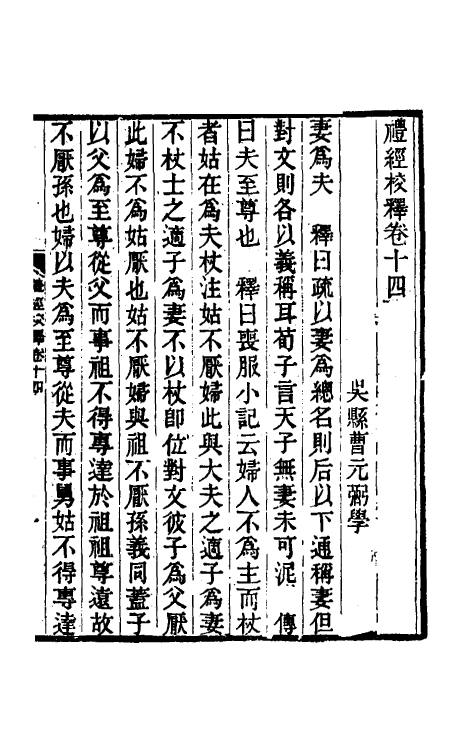 禮經校釋卷十四
吳縣曹元弼學
妻爲夫　釋曰疏以妻爲總名則后以下通稱妻但
對文則各以義稱耳荀子言天子無妻未可泥　傳
曰夫至尊也　釋曰喪服小記云婦人不爲主而杖
者姑在爲夫杖注姑不厭婦此與大夫之適子爲妻
不杖士之適子爲妻不以杖卽位對文彼子爲父厭
此婦不爲姑厭也姑不厭婦與祖不厭孫義同蓋子
以父爲至尊從父而事祖不得專達於祖祖尊遠故
不厭孫也婦以夫爲至尊從夫而事舅姑不得專達
禮經校釋卷十四